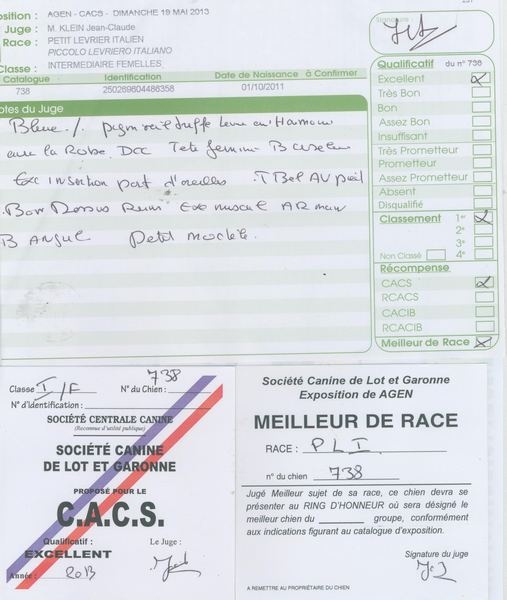 osition : AGEN - CACS - DIMANCHE 19 MAI 2013
Juge : M. KLEIN Jean-Claude
Race : PETIT LEVRIER ITALIEN
PICCOLO LEVRIERO ITALIANO
Classe : INTERMEDIAIRE FEMELLES
Catalogue Identification Date de Naissance à Confirmer
738 250269604486358 01/10/2011
otes du Juge
Bleue
la Robe. Dcc Tete
Exc insertion port d'oreilles. T Bel AV
Bon Dessus Rein
B Angul Petit modèle.
Signature :
Qualificatif du n° 738
Excellent X
Très Bon
Bon
Assez Bon
Insuffisant
Très Prometteur
Prometteur
Assez Prometteur
Absent
Disqualifié
Classement 1er X
2e
3e
Non Classé 4e
Récompense
CACS X
RCACS
CACIB
RCACIB
Meilleur de Race X
Classe I/F N° du Chien : 738
N° d'Identification :
SOCIÉTÉ CENTRALE CANINE
(Reconnue d'utilité publique)
SOCIÉTÉ CANINE
DE LOT ET GARONNE
PROPOSÉ POUR LE
C.A.C.S.
Qualificatif : Le Juge :
EXCELLENT
Année : 2013
Société Canine de Lot et Garonne
Exposition de AGEN
MEILLEUR DE RACE
RACE : PLI
n° du chien 738
Jugé Meilleur sujet de sa race, ce chien devra se
présenter au RING D'HONNEUR où sera désigné le
meilleur chien du groupe, conformément
aux indications figurant au catalogue d'exposition.
Signature du juge
A REMETTRE AU PROPRIÉTAIRE DU CHIEN